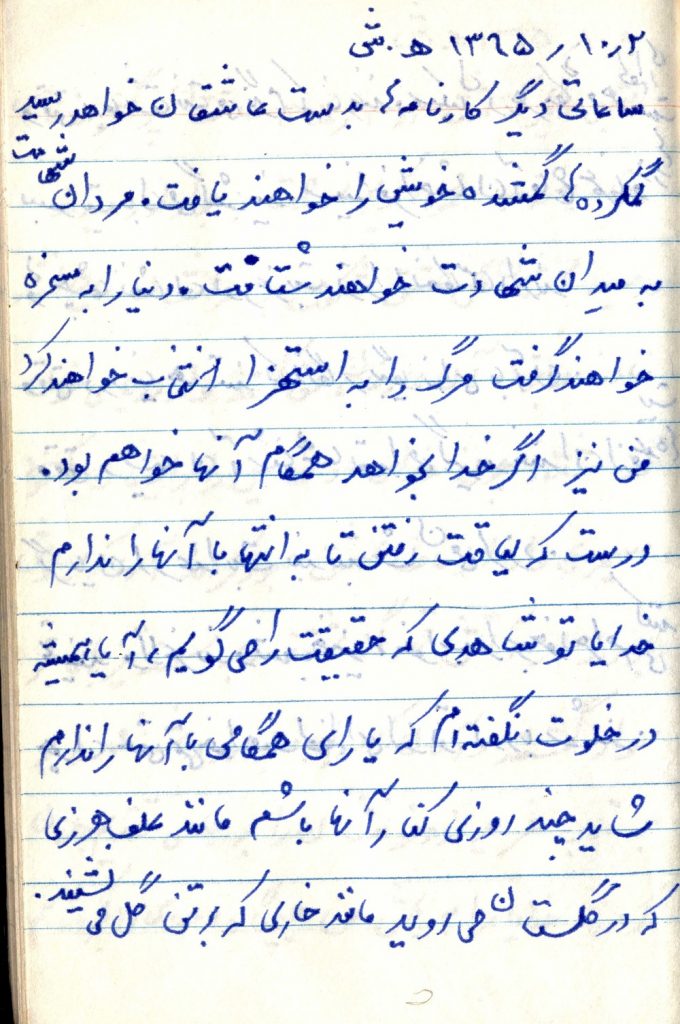 ۲ر۱۰ر ۱۳۶۵ ه.ش
ساعاتی دیگر کارنامه‌ٔ بدست عاشقان خواهد رسید
گمکرده‌ٔ گمشده خویش را خواهند یافت. مردان شهادت
به میدان شهادت خواهند شتافت. دنیا را به سخره
خواهند گرفت مرگ را به استهزا انتخاب خواهند کرد
من نیز اگر خدا بخواهد همگام آنها خواهم بود.
درست که لیاقت رفتن تا به انتها با آنها را ندارم
خدایا تو شاهدی که حقیقت را می گویم، آیا همیشه
در خلوت نگفته ام که یارای همگامی با آنها را ندارم
شاید چند روزی کنار آنها باشم مانند علف هرزی
که در گلستان می روید مانند خاری که بر تن گل می نشیند.